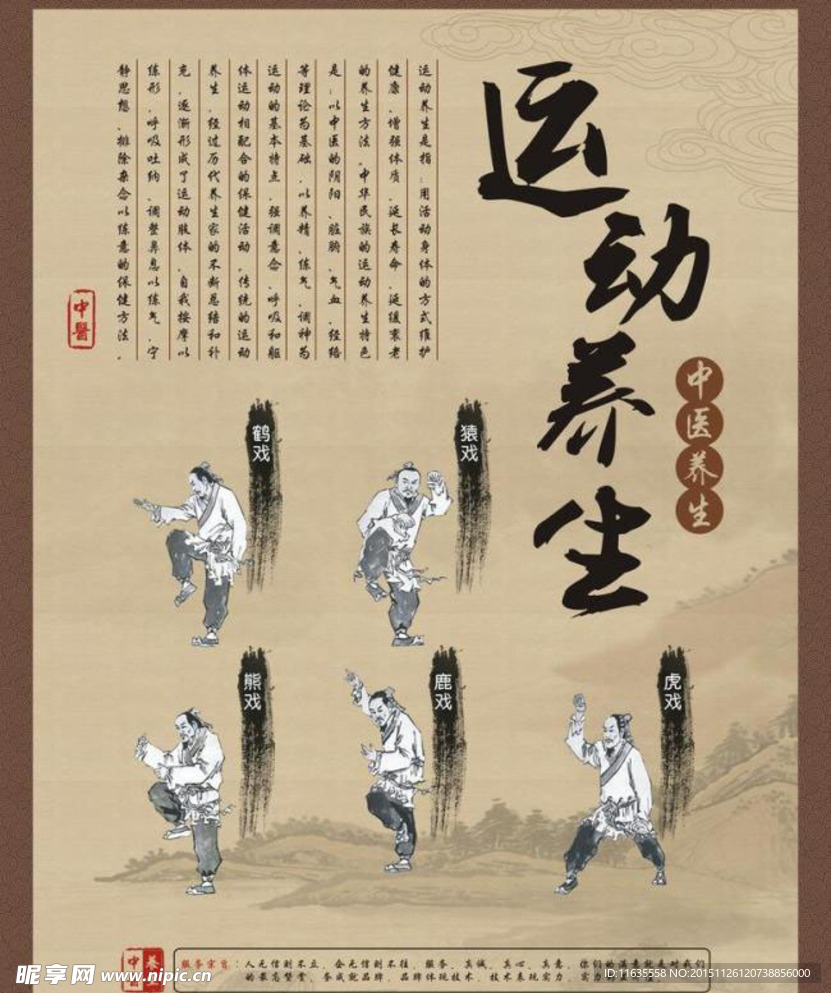 运动养生
中医养生
运动养生是指:用活动身体的方式维护
健康、增强体质、延长寿命、延缓衰老
的养生方法。中华民族的运动养生特色
是:以中医的阴阳、脏腑、气血、经络
等理论为基础,以养精、练气、调神为
运动的基本特点,强调意念、呼吸和躯
体运动相配合的保健活动。传统的运动
养生,经过历代养生家的不断总结和补
充,逐渐形成了运动肢体、自我按摩以
练形,呼吸吐纳、调整鼻息以练气,宁
静思想、排除杂念以练意的保健方法。
中醫
鹤戏
猿戏
熊戏
鹿戏
虎戏
服务宗旨:人无信则不立,会无信则不往,服务、真诚、真心、真意,你们的满意就是对我们
的最高赞赏,务成就品牌、品牌体现技术、技术表现实力、实力
昵享网 www.nipic.cn
ID:11635558 NO:20151126120738856000